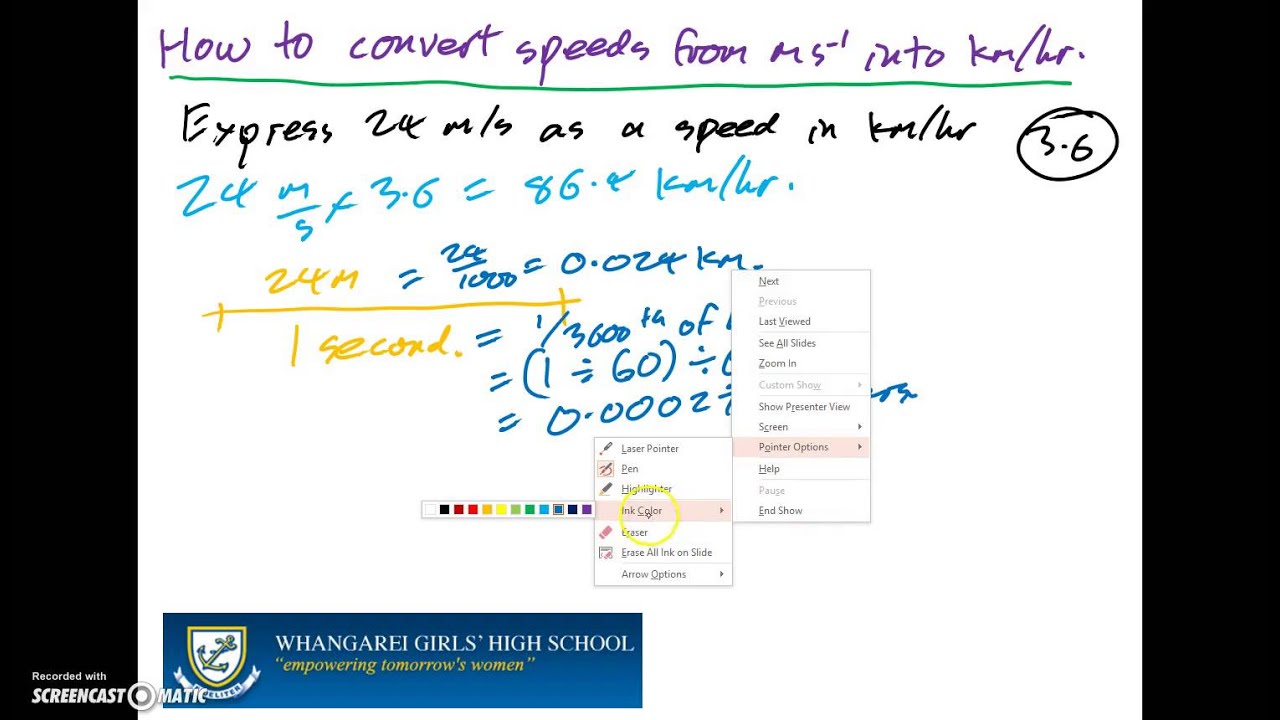 How to convert speeds from ms⁻¹ into km/hr.
Express 24 m/s as a speed in km/hr 3.6
24 m/s × 3.6 = 86.4 km/hr.
24m = 24/1000 = 0.024 km.
1 second. = 1/3600 th of
= (1 ÷ 60) ÷
= 0.0002
Next
Previous
Last Viewed
See All Slides
Zoom In
Custom Show
Show Presenter View
Screen
Pointer Options
Help
Pause
End Show
Laser Pointer
Pen
Highlighter
Ink Color
Eraser
Erase All Ink on Slide
Arrow Options
WHANGAREI GIRLS' HIGH SCHOOL
"empowering tomorrow's women"
Recorded with
SCREENCAST O MATIC